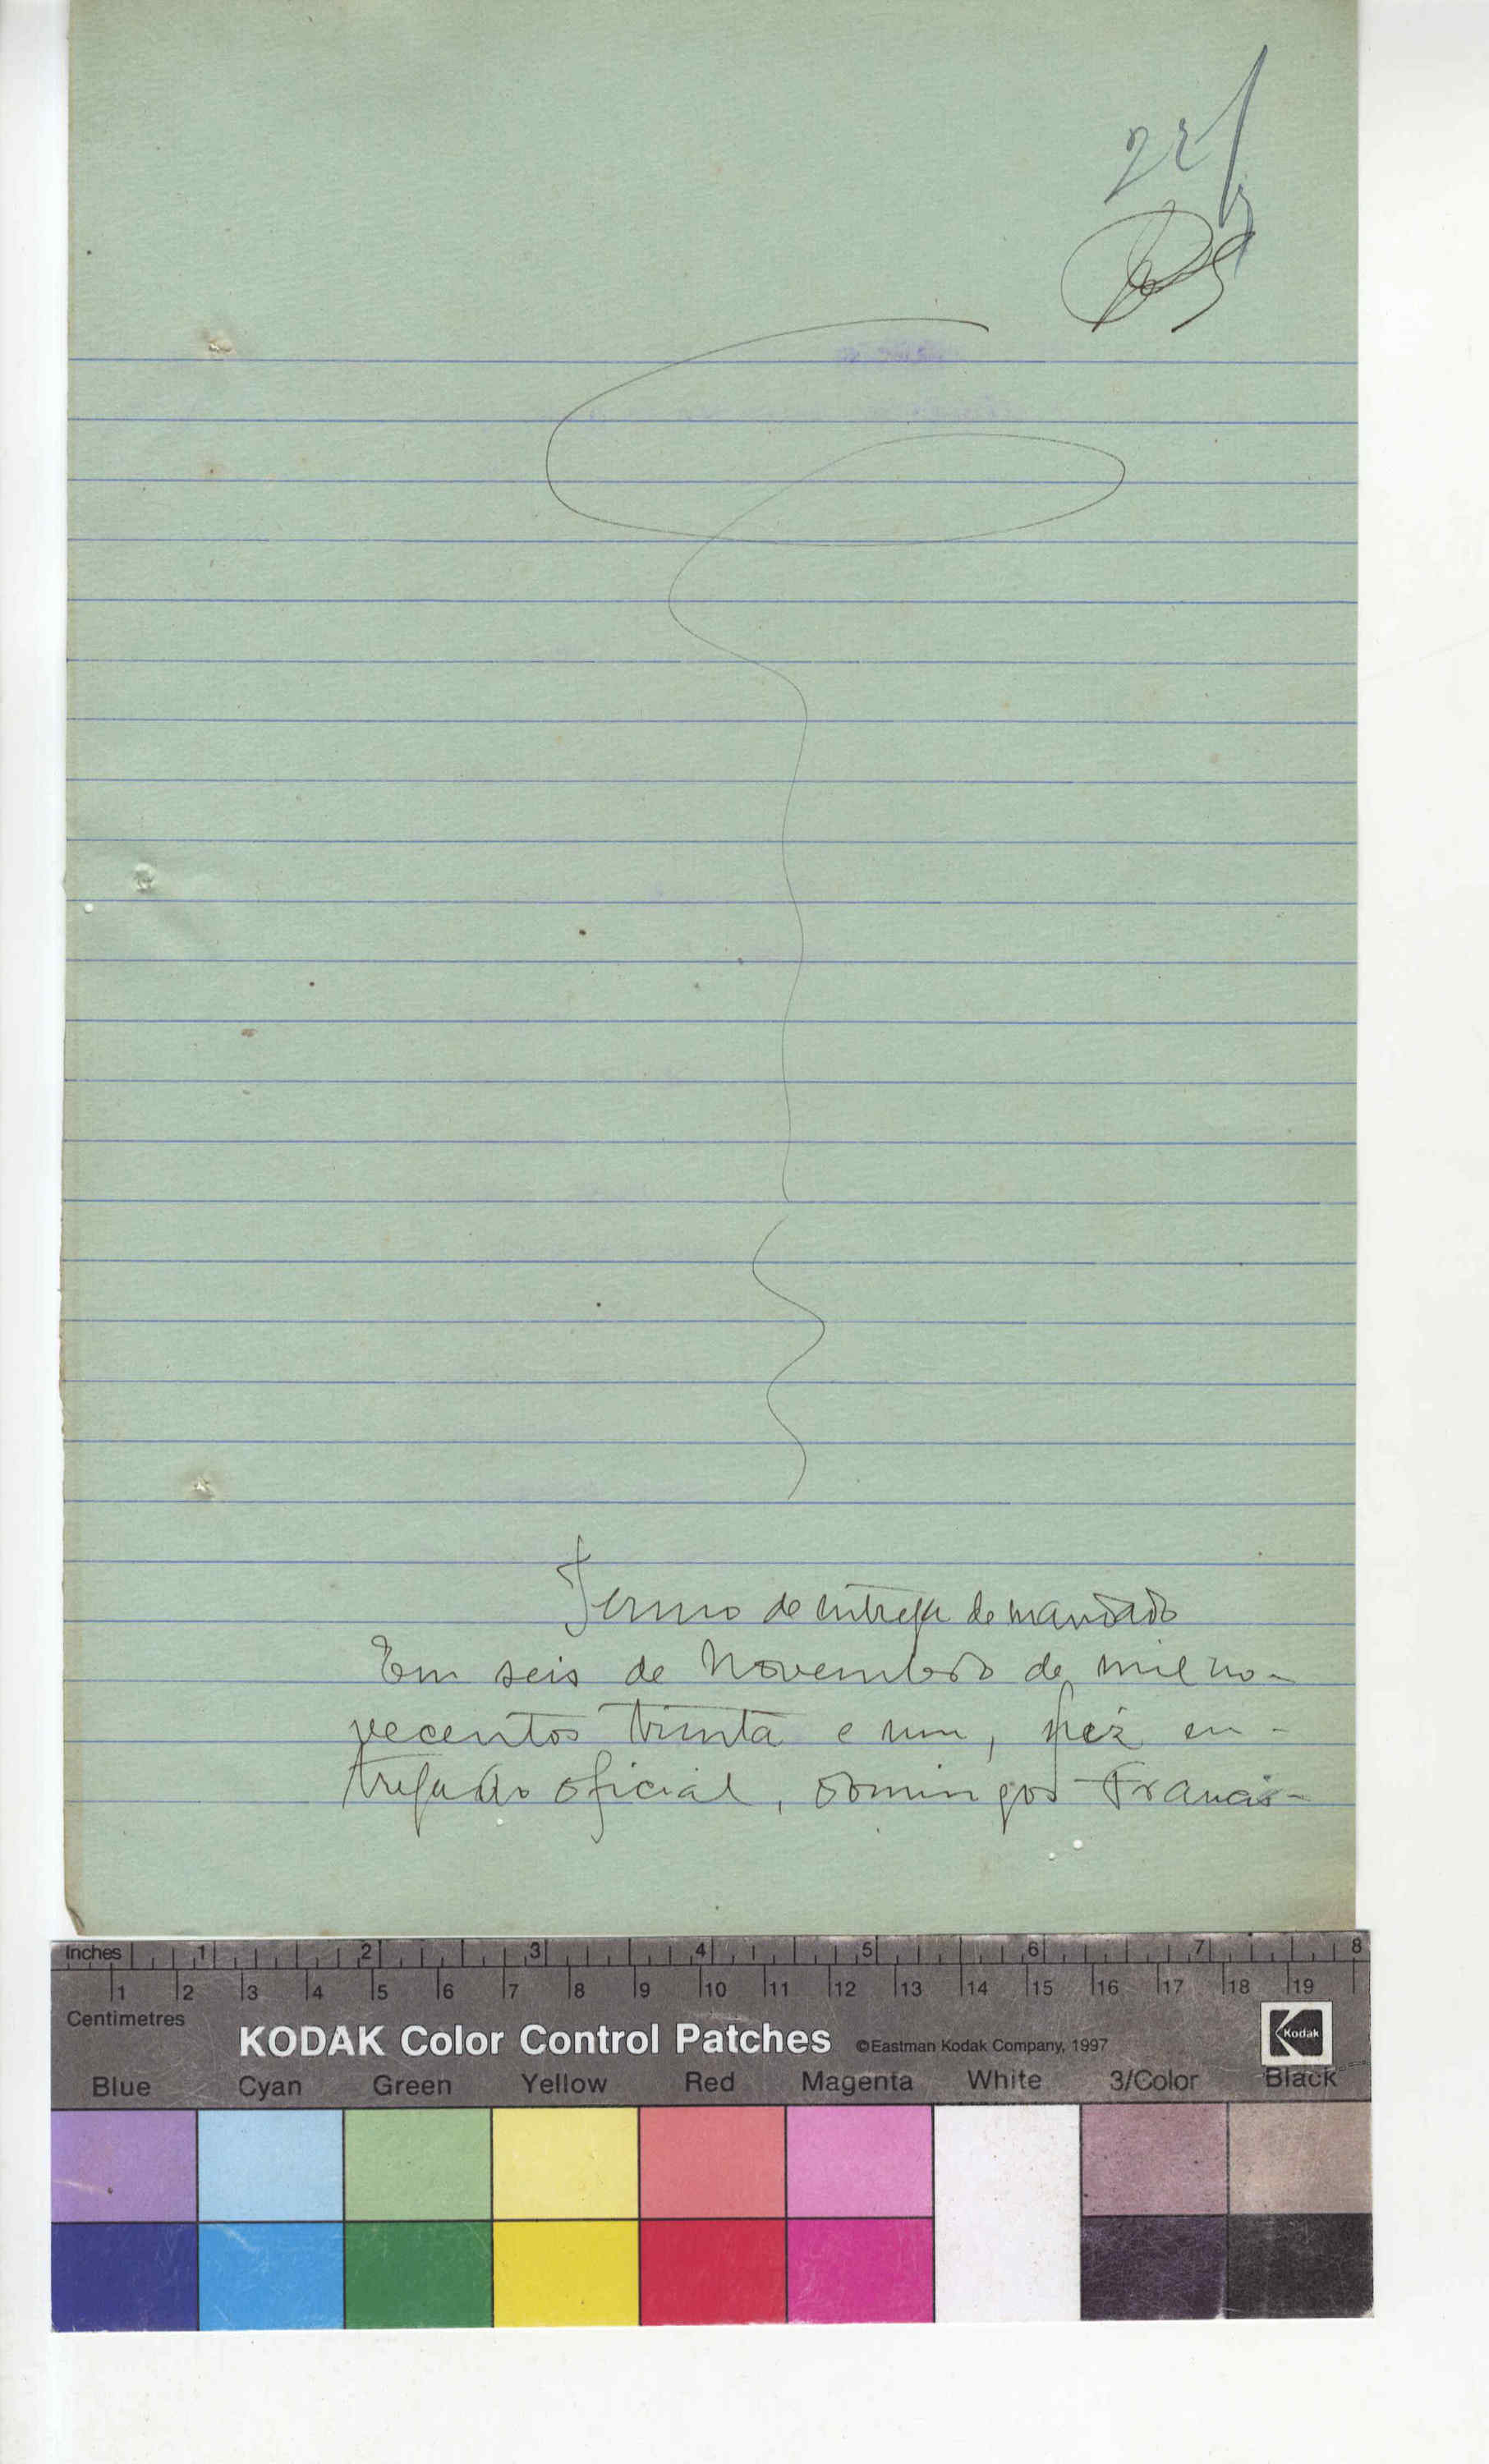 22
Termo de entrega de mandado
Em seis de Novembro de mil no-
vecentos trinta e um, fiz en-
trega ao oficial, Domingos Francis-
Inches 1 2 3 4 5 6 7 8
1 2 3 4 5 6 7 8 9 10 11 12 13 14 15 16 17 18 19
Centimetres
KODAK Color Control Patches ©Eastman Kodak Company, 1997 Kodak
Blue Cyan Green Yellow Red Magenta White 3/Color Black